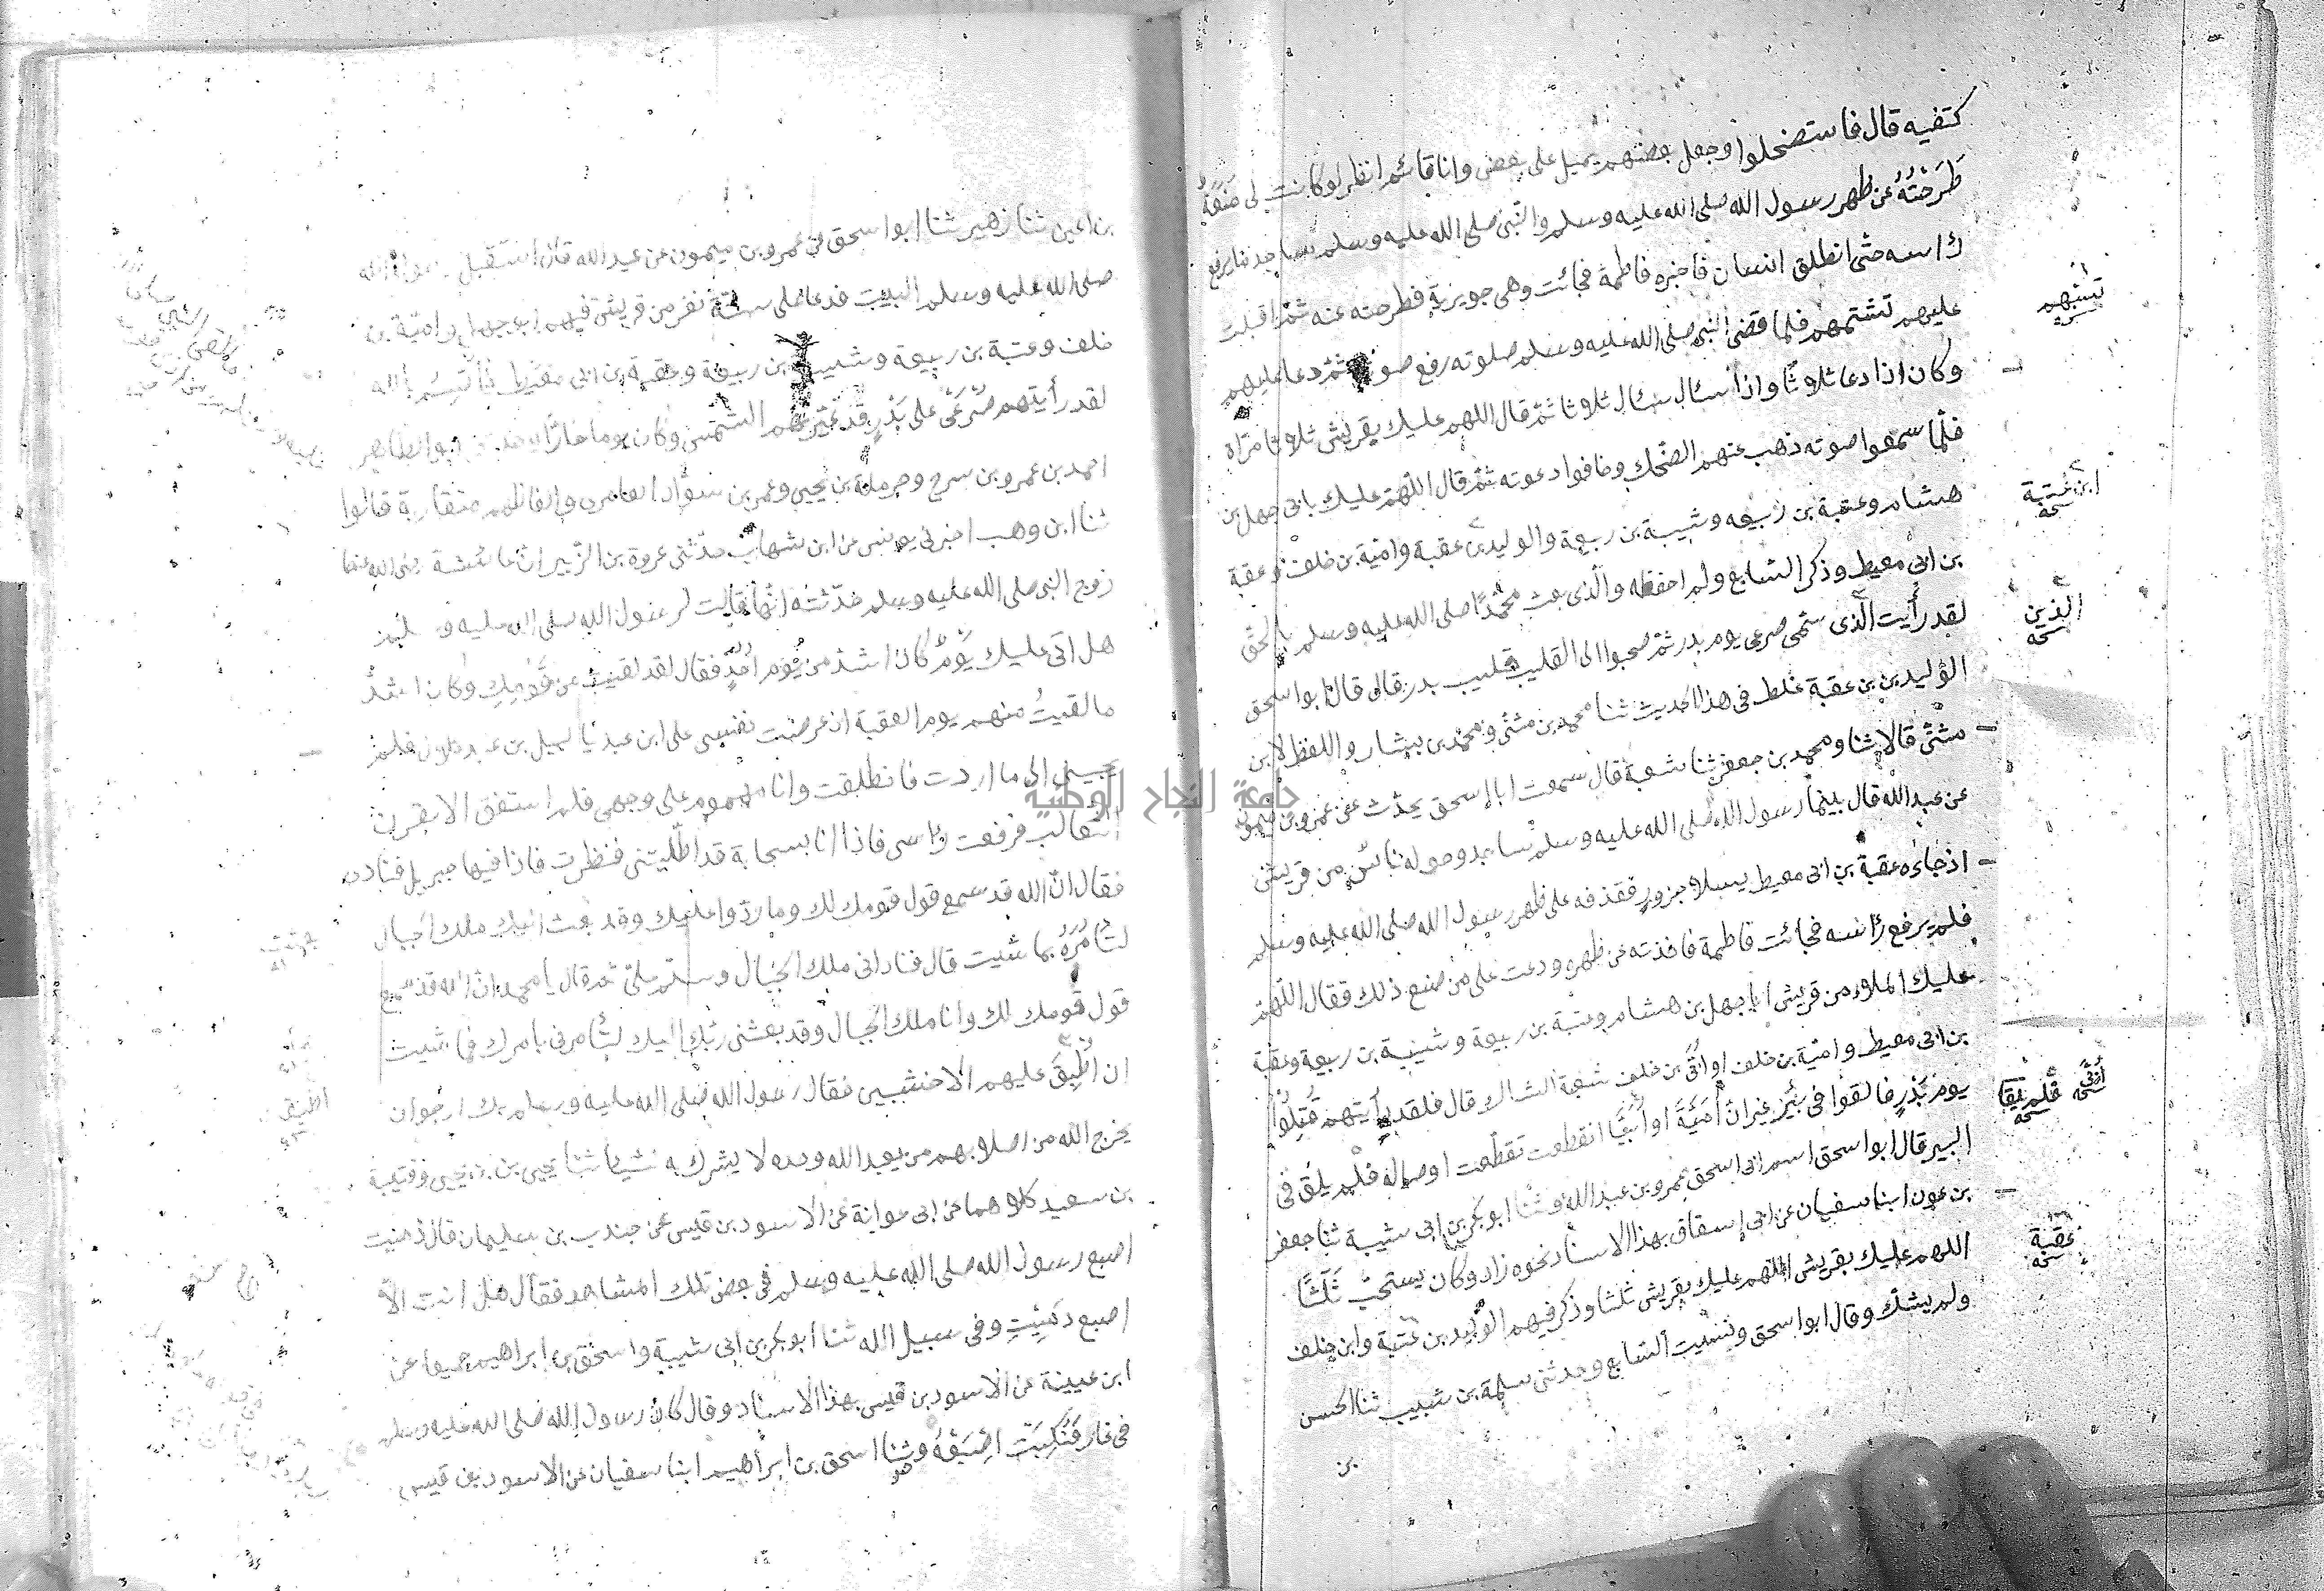 كتفيه قال فاستضحكوا وجعل بعضهم يميل على بعض وانا قائم انظر لو كانت لى مَنَعَةٌ
طَرَحْتُهُ عن ظهر رسول الله صلى الله عليه وسلم والنبى صلى الله عليه وسلم ساجد ما يرفع
راسه حتى انطلق انسان فاخبره فاطمة فجائت وهى جويرية فطرحته عنه ثمّ اقبلت
عليهم تشتمهم فلما قضى النبى صلى الله عليه وسلم صلوته رفع صوته ثمّ دعا عليهم
وكان اذا دعا ثلاثا واذا سئال سئال ثلاثا ثمّ قال اللهم عليك بقريش ثلاثا مراة
فلمّا سمعوا صوته ذهب عنهم الضحك وخافوا دعوته ثمّ قال اللهمّ عليك بابى جهل بن
هشام وعتبة بن ربيعه وشيبة بن ربيعة والوليد بن عقبة وامية بن خلف وعقبة
بن ابى معيط وذكر السابع ولم احفظه والّذى بعث محمّدًا صلى الله عليه وسلم بالحقّ
لقد رأيت الّذى سَمّى صرعى يوم بدر ثمّ سحبوا الى القليب قليب بدر قال قال ابوا سحق
الوليد بن بن عقبة غلط فى هذا الحديث ثنا محمد بن مثنّى ومحمد بن بيشار واللفظ لابن
مثنّى قالا ثنا ومحمد بن جعفر ثنا شعبة قال سمعت ابا اسحق يحدّث عن عمرو بن ميمون
عن عبد الله قال بينما رسول الله صلى الله عليه وسلم ساجد وحوله ناسٌ من قريش
اذ جاءه عقبة بن ابى معيط بسلا جزور فقذفه على ظهر رسول الله صلى الله عليه وسلم
فلم يرفع رأسه فجائت فاطمة فاخذته عن ظهره ودعت على من صنع ذلك فقال اللهمّ
عليك الملاء من قريش ابا جهل بن هشام وعتبة بن ربيعة وشيبة بن ربيعة وعقبة
بن ابى معيط وامية بن خلف او اُبَىّ بن خلف شعبة الشاك قال فلقد رأيتهم قُتِلُوْا
يوم بَدْرٍ فالقوا فى بئر غير انّ اُمَيَّةَ او اُبَيًّا انقطعت تقطّعت اوصاله فلم يلق فى
البير قال ابوا سحق اسم ابى اسحق عمرو بن عبد الله وثنا ابو بكر بن ابى شيبة ثنا جعفر
بن عون ابنا سفيان عن ابى إسقاق بهذا الاسناد نحوه زاد وكان يستحبّ ثَلَثًا
اللهم عليك بقريش اللهم عليك بقريش ثلثا وذكر فيهم الوليد بن عتبة وابن خلف
ولم يشك وقال ابوا سحق ونسيت السّابع وحدثنى سلمة بن شبيب ثنا الحسن
بن
تسبّهم
نسخه
ابن عتبة
نسخه
الذين
نسخه
نسخه
نسخه
عقبة
نسخه
بن اعين ثنا زهير ثنا ابوا سحق عن عمرو بن ميمون عن عبد الله قال استقبل رسول الله
صلى الله عليه وسلم البيت فدعا على ستّة نفر من قريش فيهم ابو جهل وامية بن
خلف وعتبة بن ربيعة وشيبة بن ربيعة وعقبة بن ابى معيط فاُقسِمُ بالله
لقد رأيتهم صَرْعَىْ على بَدْرٍ قد غيّرتهم الشّمس وكان يوما حارًّا وحدثنى ابوا لطاهر
احمد بن عمرو بن سرح وحرملة بن يحيى وعمر بن سوّاد العامرى والفاظهم متقاربة قالوا
ثنا ابن وهب اخبرنى يونس عن ابن شهاب حدّثنى عروة بن الزّبير انّ عائشة رضى الله عنها
زوج النبى صلى الله عليه وسلم حدّثته انّها قالت لرسول الله صلى الله عليه وسلم
هل اتى عليك يَوْمٌ كان اشدّ من يَوْمِ اُحُدٍ فقال لقد لقيت من قَوْمِكِ وكان اشدُّ
ما لقيتُ منهم يوم العقبة اذ عرضت نفسى على ابن عبد ياليل بن عبد كلال فلم
يجبنى الى ما اردت فانطلقت وانا مهموم على وجهى فلم استفق الا بقرن
الثعالب فرفعت رأسى فاذا انا بسحابة قد اظلّتنى فنظرت فاذا فيها جبريل فنادى
فقال انّ الله قد سمع قول قومك لك وما ردّوا عليك وقد بعث اليك ملك الجبال
لتأمُرَهُ بما شيت قال فنادانى ملك الجبال وسلّم علىّ ثم قال يا محمد انّ الله قد سمع
قول قومك لك وانا ملك الجبال وقد بعثنى ربّك اليك لتأمرنى بامرك فما شيت
ان اُطْبِقَ عليهم الاخشبين فقال رسول الله صلى الله عليه وسلم بل ارجوان
يخرج الله من اصلابهم من يعبد الله وحده لا يشرك به شيئا ثنا يحيى بن يحيى وقتيبة
بن سعيد كلاهما عن ابى عوانة عن الاسود بن قيس عن جندب بن سليمان قال دميت
اصبع رسول الله صلى الله عليه وسلم فى بعض تلك المشاهد فقال هل انت الّا
اصبع دَمِيْتِ وفى سبيل الله ثنا ابو بكر بن ابى شيبة واسحق بن ابراهيم جميعا عن
ابن عيينة عن الاسود بن قيس بهذا الاسناد وقال كان رسول الله صلى الله عليه وسلم
فى غار فَنُكِبَتْ اِصْبَعُهُ وثنا اسحق بن ابراهيم ابنا سفيان عن الاسود بن قيس
اطبق
جامعة النجاح الوطنية